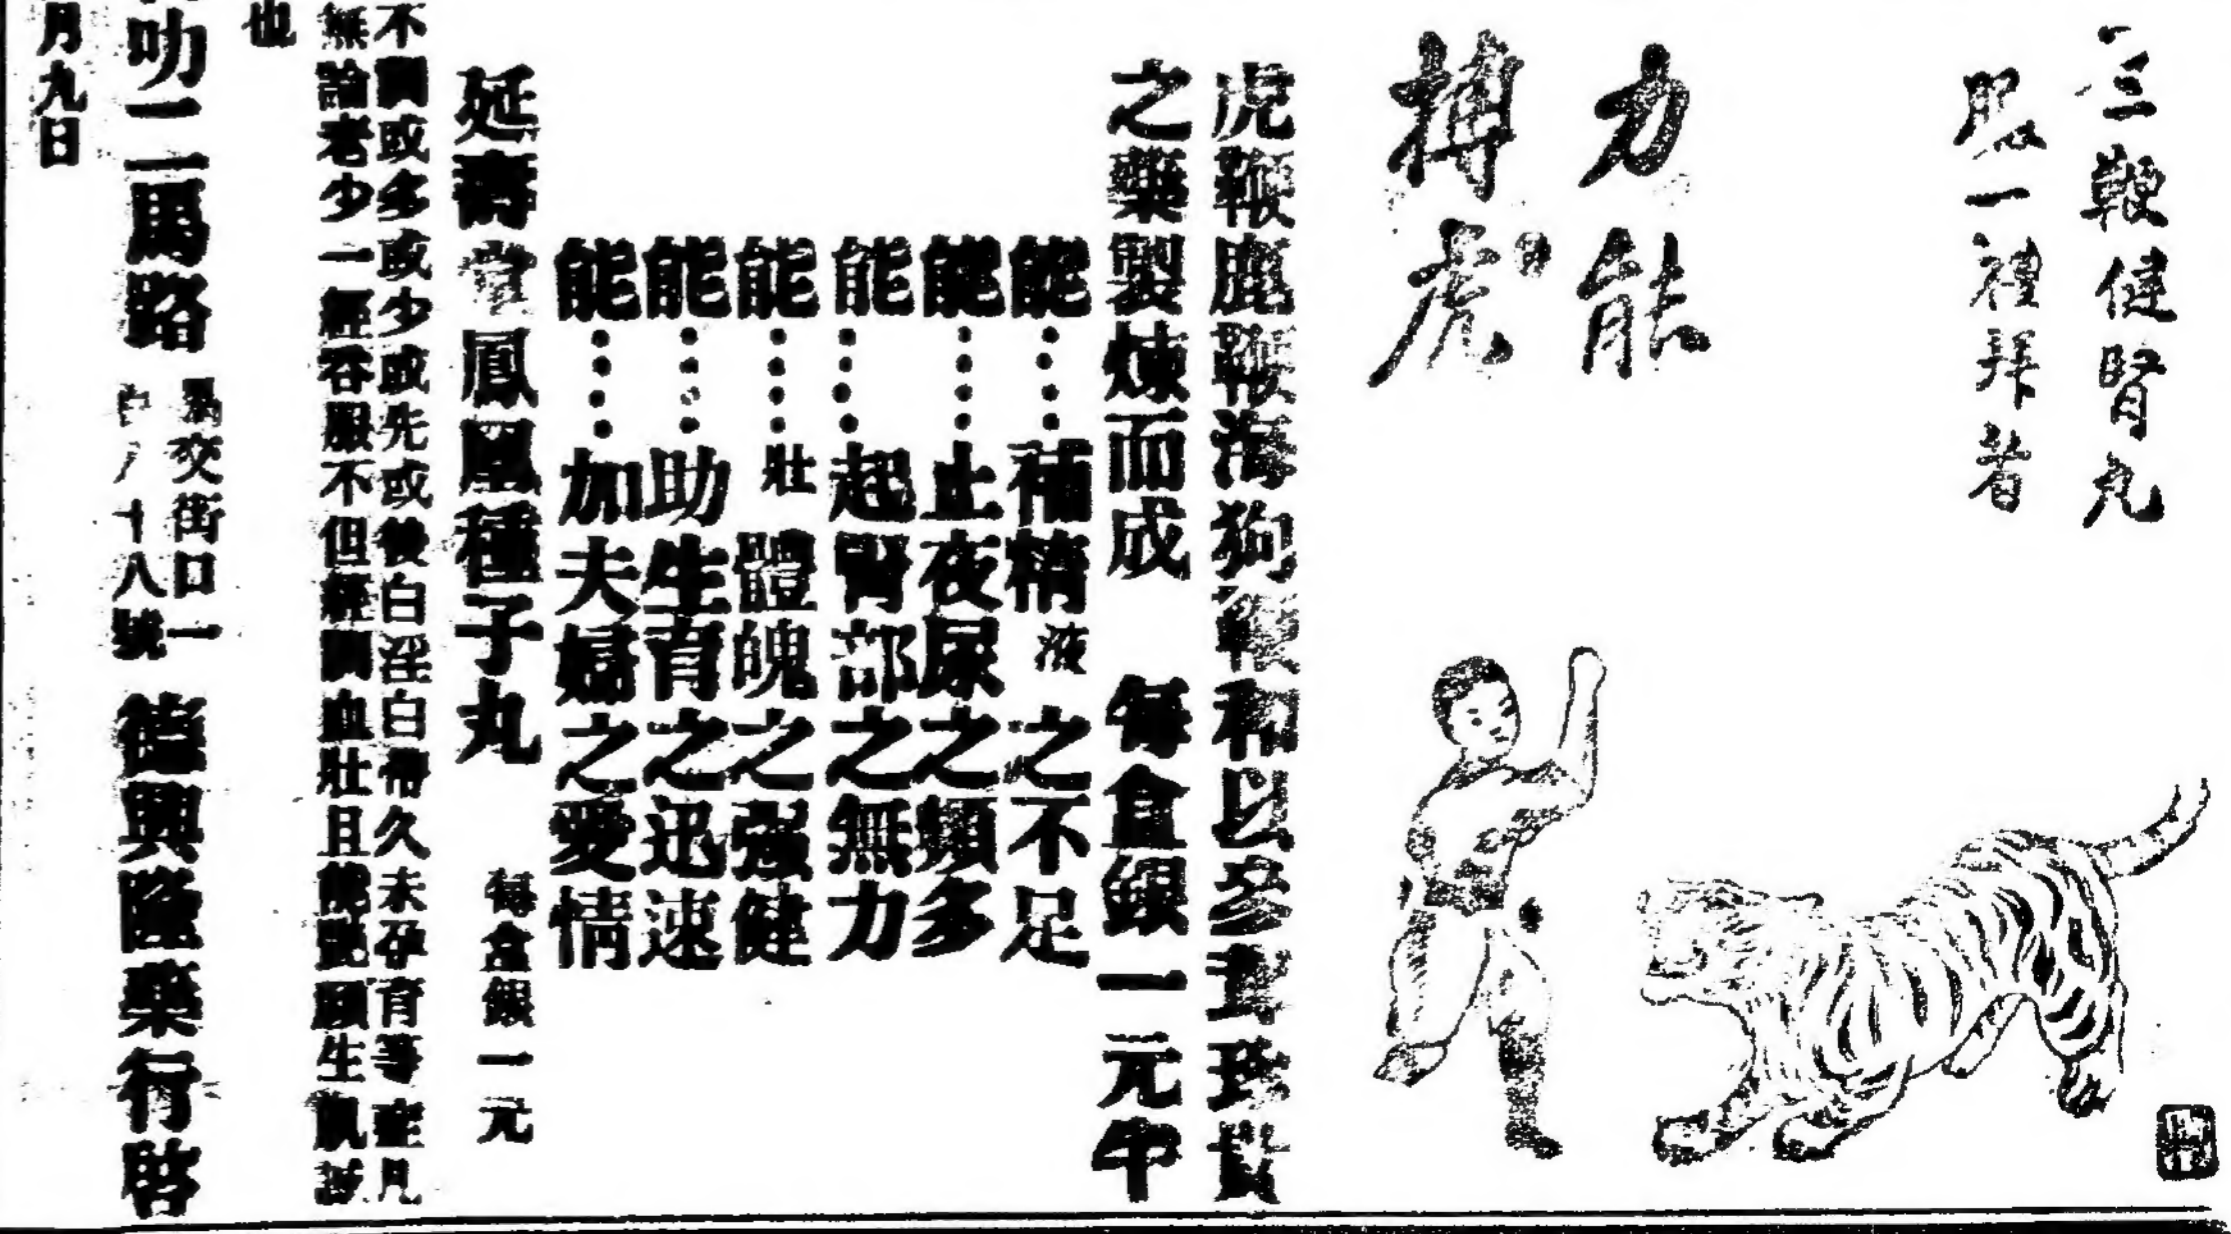 三鞭健腎丸
服一禮拜者
力能
搏虎
虎鞭鹿鞭海狗鞭和以參茸珍貴
之藥製煉而成 每盒銀一元半
能……補精液之不足
能……止夜尿之頻多
能……起腎部之無力
能……壯體魄之强健
能……助生育之迅速
能……加夫婦之愛情
延壽堂鳳凰種子丸 每盒銀一元
不調或多或少或先或後白淫白帶久未孕育等症凡
無論老少一經吞服不但經調血壯且能艷顏生肌誠
也
叻二馬路 交街口一 十八號 德興隆藥行啓
月九日